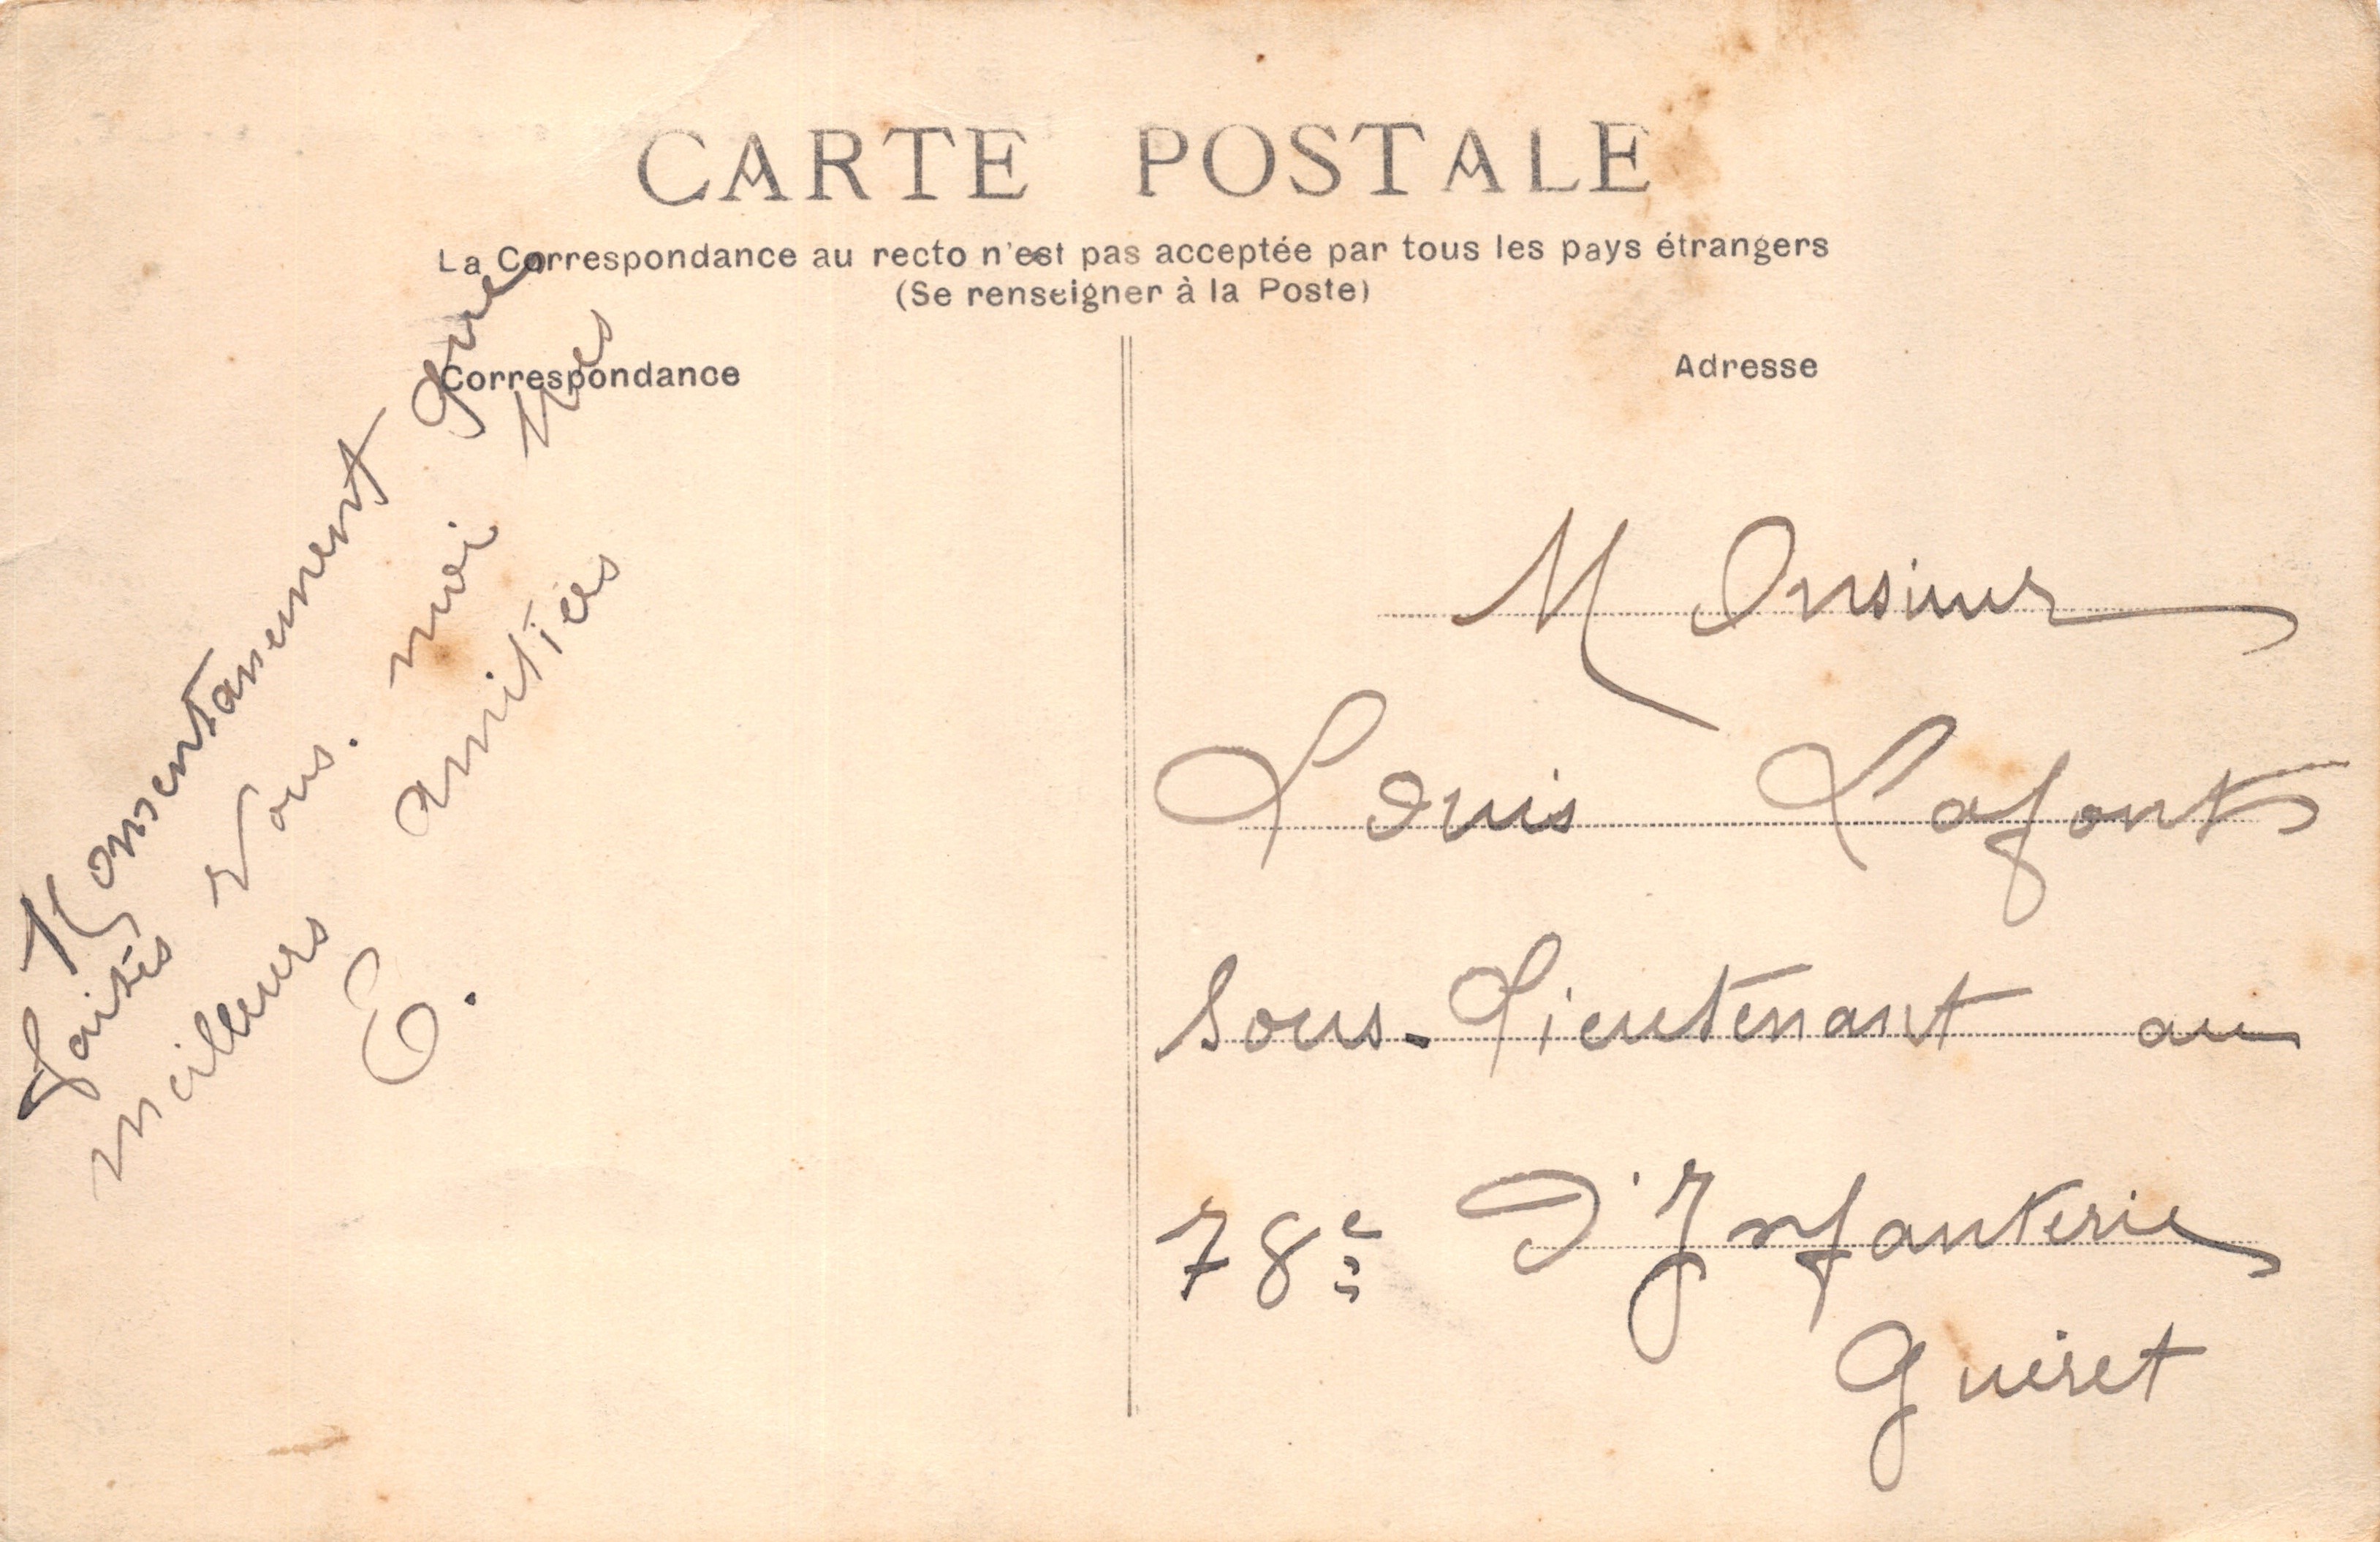 CARTE POSTALE
La Correspondance au recto n'est pas acceptée par tous les pays étrangers
(Se renseigner à la Poste)
Correspondance
Adresse
que
faites vous. moi mes
meilleurs amitiés
E.
Monsieur
Louis Lafont
Sous-Lieutenant au
78e D'Infanterie
Guéret